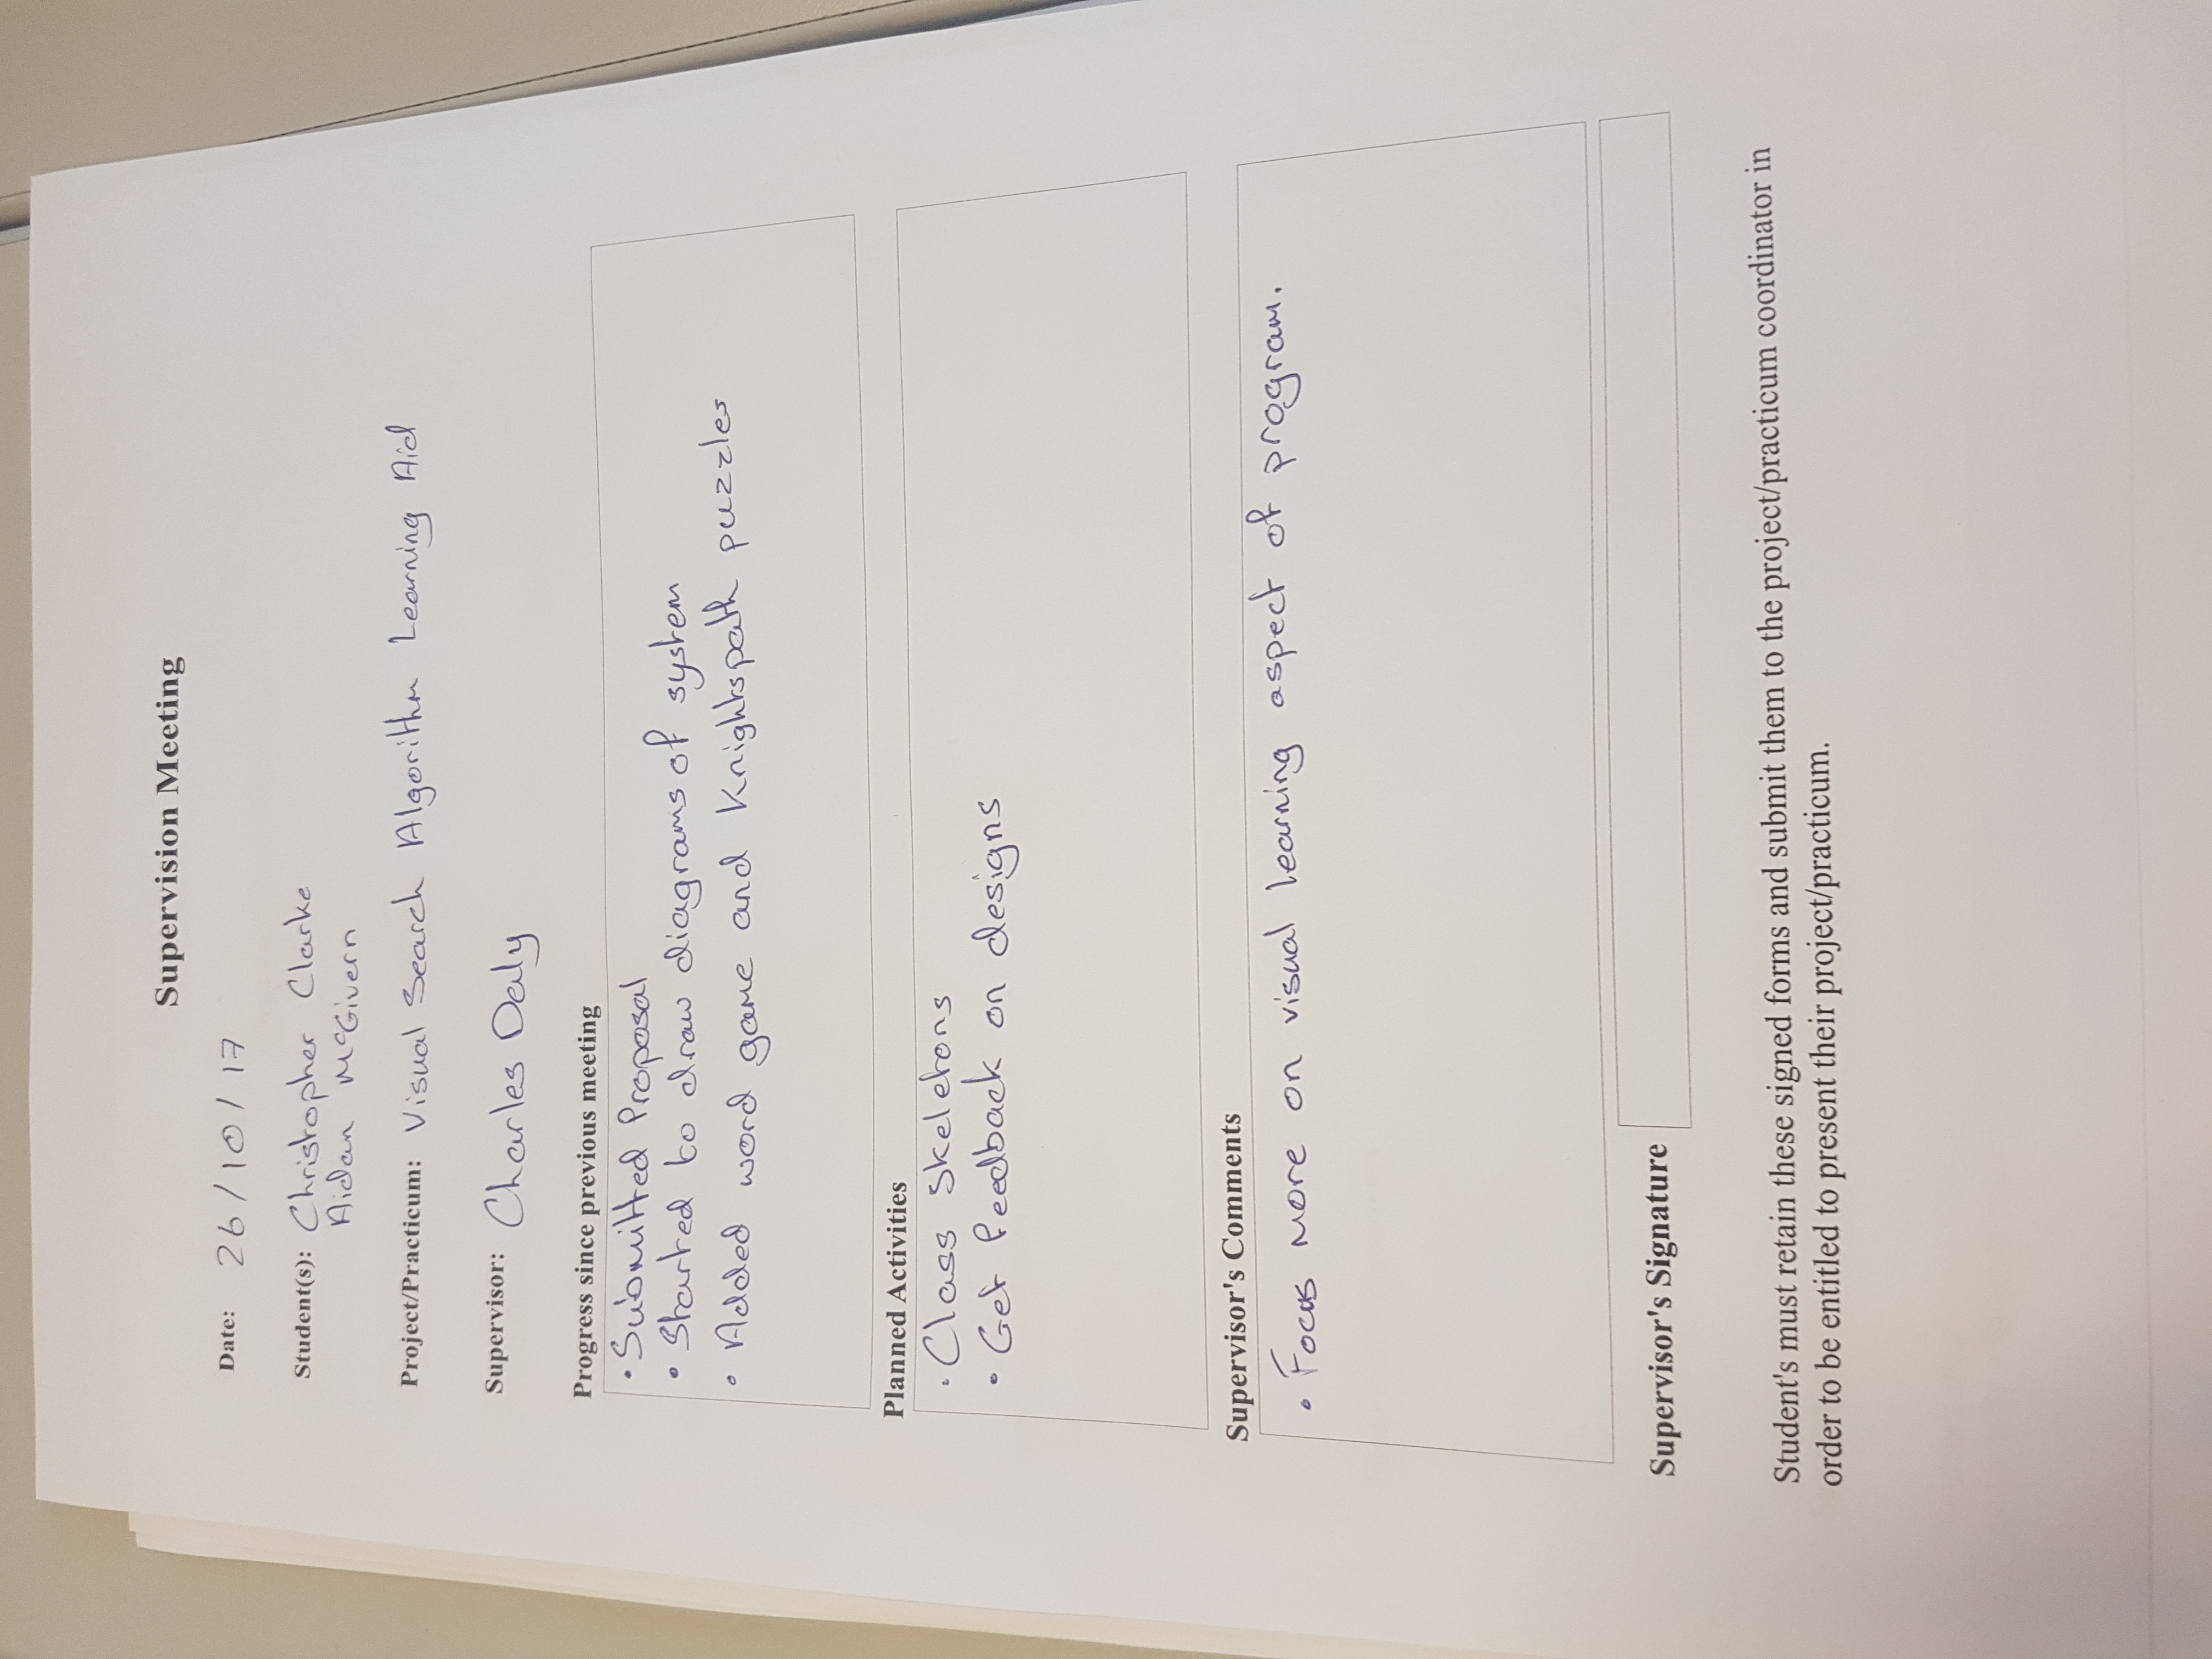 Supervision Meeting
Date: 26/10/17
Student(s): Christopher Clarke
Aidan McGivern
Project/Practicum: Visual Search Algorithm Learning Aid
Supervisor: Charles Daly
Progress since previous meeting
• Submitted Proposal
• Started to draw diagrams of system
• Added word game and Knightspath puzzles
Planned Activities
• Class Skeletons
• Get feedback on designs
Supervisor's Comments
• Focus more on visual learning aspect of program.
Supervisor's Signature
Student's must retain these signed forms and submit them to the project/practicum coordinator in
order to be entitled to present their project/practicum.